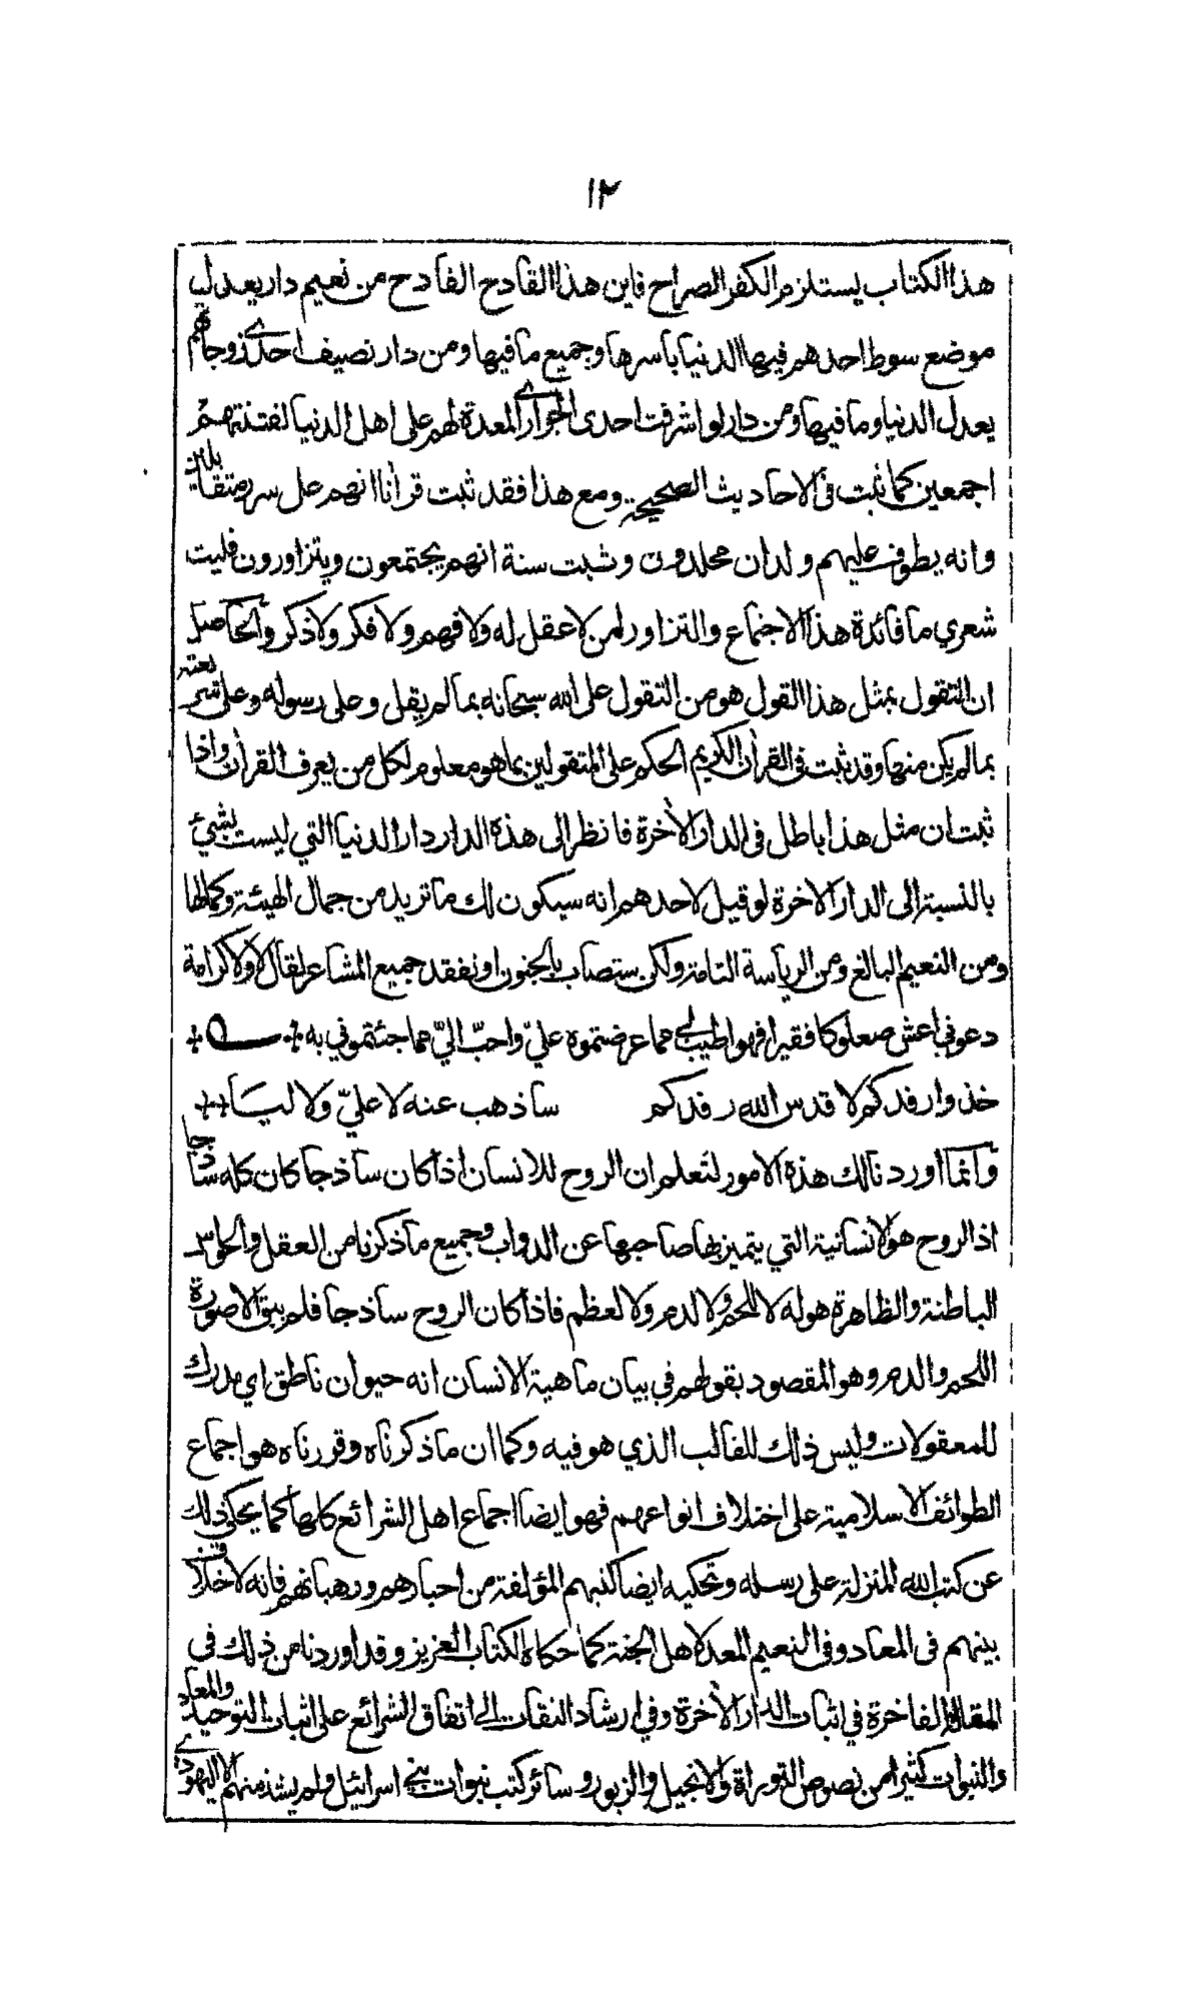 ١٢
هذا الكتاب يستلزم الكفر الصراح فاين هذا القادح الفادح من نعيم دار يعدل
موضع سوط احدهم فيها الدنيا باسرها وجميع ما فيها ومن دار نصيف احدى زوجاتهم
يعدل الدنيا وما فيها ومن دار لو اشرفت احدى الجواري المعدة لهم على اهل الدنيا لفتنتهم
اجمعين كما ثبت في الاحاديث الصحيحة ومع هذا فقد ثبت قرآنا انهم على سرر متقابلين
وانه يطوف عليهم ولدان مخلدون وثبت سنة انهم يجتمعون ويتزاورون فليت
شعري ما فائدة هذا الاجتماع والتزاور لمن لا عقل له ولا فهم ولا فكر ولا ذكر والحاصل
ان التقول بمثل هذا القول هو من التقول على الله سبحانه بما لم يقل وعلى رسوله وعلى شريعته
بما لم يكن منها وقد ثبت في القرآن الكريم الحكم على المتقولين بما هو معلوم لكل من يعرف القرآن واذا
ثبت ان مثل هذا باطل في الدار الآخرة فانظر الى هذه الدار دار الدنيا التي ليست بشيئ
بالنسبة الى الدار الآخرة لو قيل لاحدهم انه سيكون لك ما تريد من جمال الهيئة وكمالها
ومن النعيم البالغ ومن الرياسة التامة ولكن ستصاب بالجنون او نفقد جميع المشاعر لقال لا ولا كرامة
دعوني اعش صعلوكا فقيرا فهو اطيب لي مما عرضتموه عليّ واحبّ اليّ مما جئتموني به
خذوا رفدكم لا قدس الله رفدكم ساذهب عنه لا عليّ ولا ليا
وانما اوردنا لك هذه الامور لتعلم ان الروح للانسان اذا كان ساذجا كان كله ساذجا
اذ الروح هو الانسانية التي يتميز بها صاحبها عن الدواب وجميع ما ذكرنا من العقل والحواس
الباطنة والظاهرة هو له لا للحم ولا لدم ولا لعظم فاذا كان الروح ساذجا فلم يبق الا صورة
اللحم والدم وهو المقصود بقولهم في بيان ماهية الانسان انه حيوان ناطق اي مدرك
للمعقولات وليس ذلك للقالب الذي هو فيه وكما ان ما ذكرناه وقررناه هو اجماع
الطوائف الاسلامية على اختلاف انواعهم فهو ايضا اجماع اهل الشرائع كلها كما يحكى ذلك
عن كتب الله المنزلة على رسله وتحكيه ايضا كتبهم المؤلفة من احبارهم ورهبانهم فانه لا خلاف
بينهم في المعاد وفي النعيم المعد لاهل الجنة كما حكاه الكتاب العزيز وقد اوردنا من ذلك في
المقالة الفاخرة في اثبات الدار الآخرة وفي ارشاد الثقات الى اتفاق الشرائع على اثبات التوحيد والمعاد
والنبوات كثيرا من نصوص التوراة والانجيل والزبور وسائر كتب نبوات بني اسرائيل ولم يشذ منهم الا اليهودي